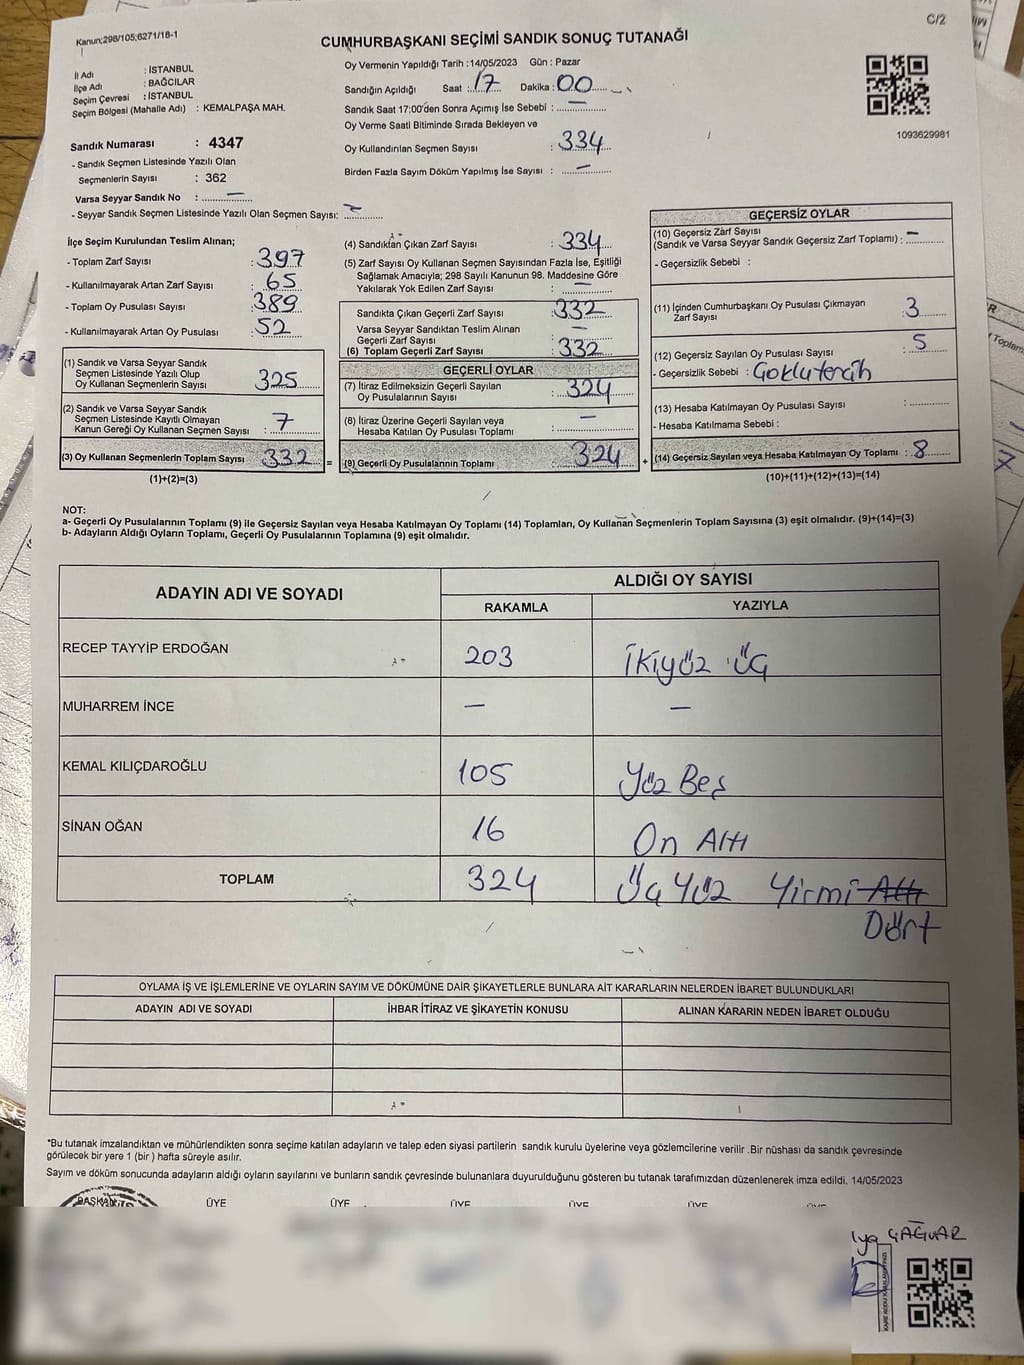 C/2
Kanun;298/105;6271/18-1
CUMHURBAŞKANI SEÇİMİ SANDIK SONUÇ TUTANAĞI
İl Adı : İSTANBUL
İlçe Adı : BAĞCILAR
Seçim Çevresi : İSTANBUL
Seçim Bölgesi (Mahalle Adı) : KEMALPAŞA MAH.
Oy Vermenin Yapıldığı Tarih :14/05/2023 Gün : Pazar
Sandığın Açıldığı Saat : 17 Dakika : 00
Sandık Saat 17:00'den Sonra Açımış İse Sebebi : —
Oy Verme Saati Bitiminde Sırada Bekleyen ve
Oy Kullandırılan Seçmen Sayısı : 334
Birden Fazla Sayım Döküm Yapılmış İse Sayısı : —
1093629981
Sandık Numarası : 4347
- Sandık Seçmen Listesinde Yazılı Olan
Seçmenlerin Sayısı : 362
Varsa Seyyar Sandık No : —
- Seyyar Sandık Seçmen Listesinde Yazılı Olan Seçmen Sayısı: —
İlçe Seçim Kurulundan Teslim Alınan;
- Toplam Zarf Sayısı : 397
- Kullanılmayarak Artan Zarf Sayısı : 65
- Toplam Oy Pusulası Sayısı : 389
- Kullanılmayarak Artan Oy Pusulası : 52
(1) Sandık ve Varsa Seyyar Sandık
Seçmen Listesinde Yazılı Olup
Oy Kullanan Seçmenlerin Sayısı : 325
(2) Sandık ve Varsa Seyyar Sandık
Seçmen Listesinde Kayıtlı Olmayan
Kanun Gereği Oy Kullanan Seçmen Sayısı : 7
(3) Oy Kullanan Seçmenlerin Toplam Sayısı : 332 =
(1)+(2)=(3)
(4) Sandıktan Çıkan Zarf Sayısı : 334
(5) Zarf Sayısı Oy Kullanan Seçmen Sayısından Fazla İse, Eşitliği
Sağlamak Amacıyla; 298 Sayılı Kanunun 98. Maddesine Göre
Yakılarak Yok Edilen Zarf Sayısı : —
Sandıkta Çıkan Geçerli Zarf Sayısı : 332
Varsa Seyyar Sandıktan Teslim Alınan
Geçerli Zarf Sayısı : —
(6) Toplam Geçerli Zarf Sayısı : 332
GEÇERLİ OYLAR
(7) İtiraz Edilmeksizin Geçerli Sayılan
Oy Pusulalarının Sayısı : 324
(8) İtiraz Üzerine Geçerli Sayılan veya
Hesaba Katılan Oy Pusulası Toplamı : —
(9) Geçerli Oy Pusulalarının Toplamı : 324 +
GEÇERSİZ OYLAR
(10) Geçersiz Zarf Sayısı
(Sandık ve Varsa Seyyar Sandık Geçersiz Zarf Toplamı) : —
- Geçersizlik Sebebi :
(11) İçinden Cumhurbaşkanı Oy Pusulası Çıkmayan
Zarf Sayısı : 3
(12) Geçersiz Sayılan Oy Pusulası Sayısı : 5
- Geçersizlik Sebebi : Çoklu tercih
(13) Hesaba Katılmayan Oy Pusulası Sayısı :
- Hesaba Katılmama Sebebi :
(14) Geçersiz Sayılan veya Hesaba Katılmayan Oy Toplamı : 8
(10)+(11)+(12)+(13)=(14)
NOT:
a- Geçerli Oy Pusulalarının Toplamı (9) ile Geçersiz Sayılan veya Hesaba Katılmayan Oy Toplamı (14) Toplamları, Oy Kullanan Seçmenlerin Toplam Sayısına (3) eşit olmalıdır. (9)+(14)=(3)
b- Adayların Aldığı Oyların Toplamı, Geçerli Oy Pusulalarının Toplamına (9) eşit olmalıdır.
ADAYIN ADI VE SOYADI
ALDIĞI OY SAYISI
RAKAMLA YAZIYLA
RECEP TAYYİP ERDOĞAN 203 İkiyüz üç
MUHARREM İNCE — —
KEMAL KILIÇDAROĞLU 105 Yüz Beş
SİNAN OĞAN 16 On Altı
TOPLAM 324 Üç Yüz Yirmi Altı
Dört
OYLAMA İŞ VE İŞLEMLERİNE VE OYLARIN SAYIM VE DÖKÜMÜNE DAİR ŞİKAYETLERLE BUNLARA AİT KARARLARIN NELERDEN İBARET BULUNDUKLARI
ADAYIN ADI VE SOYADI İHBAR İTİRAZ VE ŞİKAYETİN KONUSU ALINAN KARARIN NEDEN İBARET OLDUĞU
*Bu tutanak imzalandıktan ve mühürlendikten sonra seçime katılan adayların ve talep eden siyasi partilerin sandık kurulu üyelerine veya gözlemcilerine verilir .Bir nüshası da sandık çevresinde
görülecek bir yere 1 (bir ) hafta süreyle asılır.
Sayım ve döküm sonucunda adayların aldığı oyların sayılarını ve bunların sandık çevresinde bulunanlara duyurulduğunu gösteren bu tutanak tarafımızdan düzenlenerek imza edildi. 14/05/2023
BAŞKAN ÜYE ÜYE ÜYE ÜYE ÜYE ÜYE
ÇAĞLAR